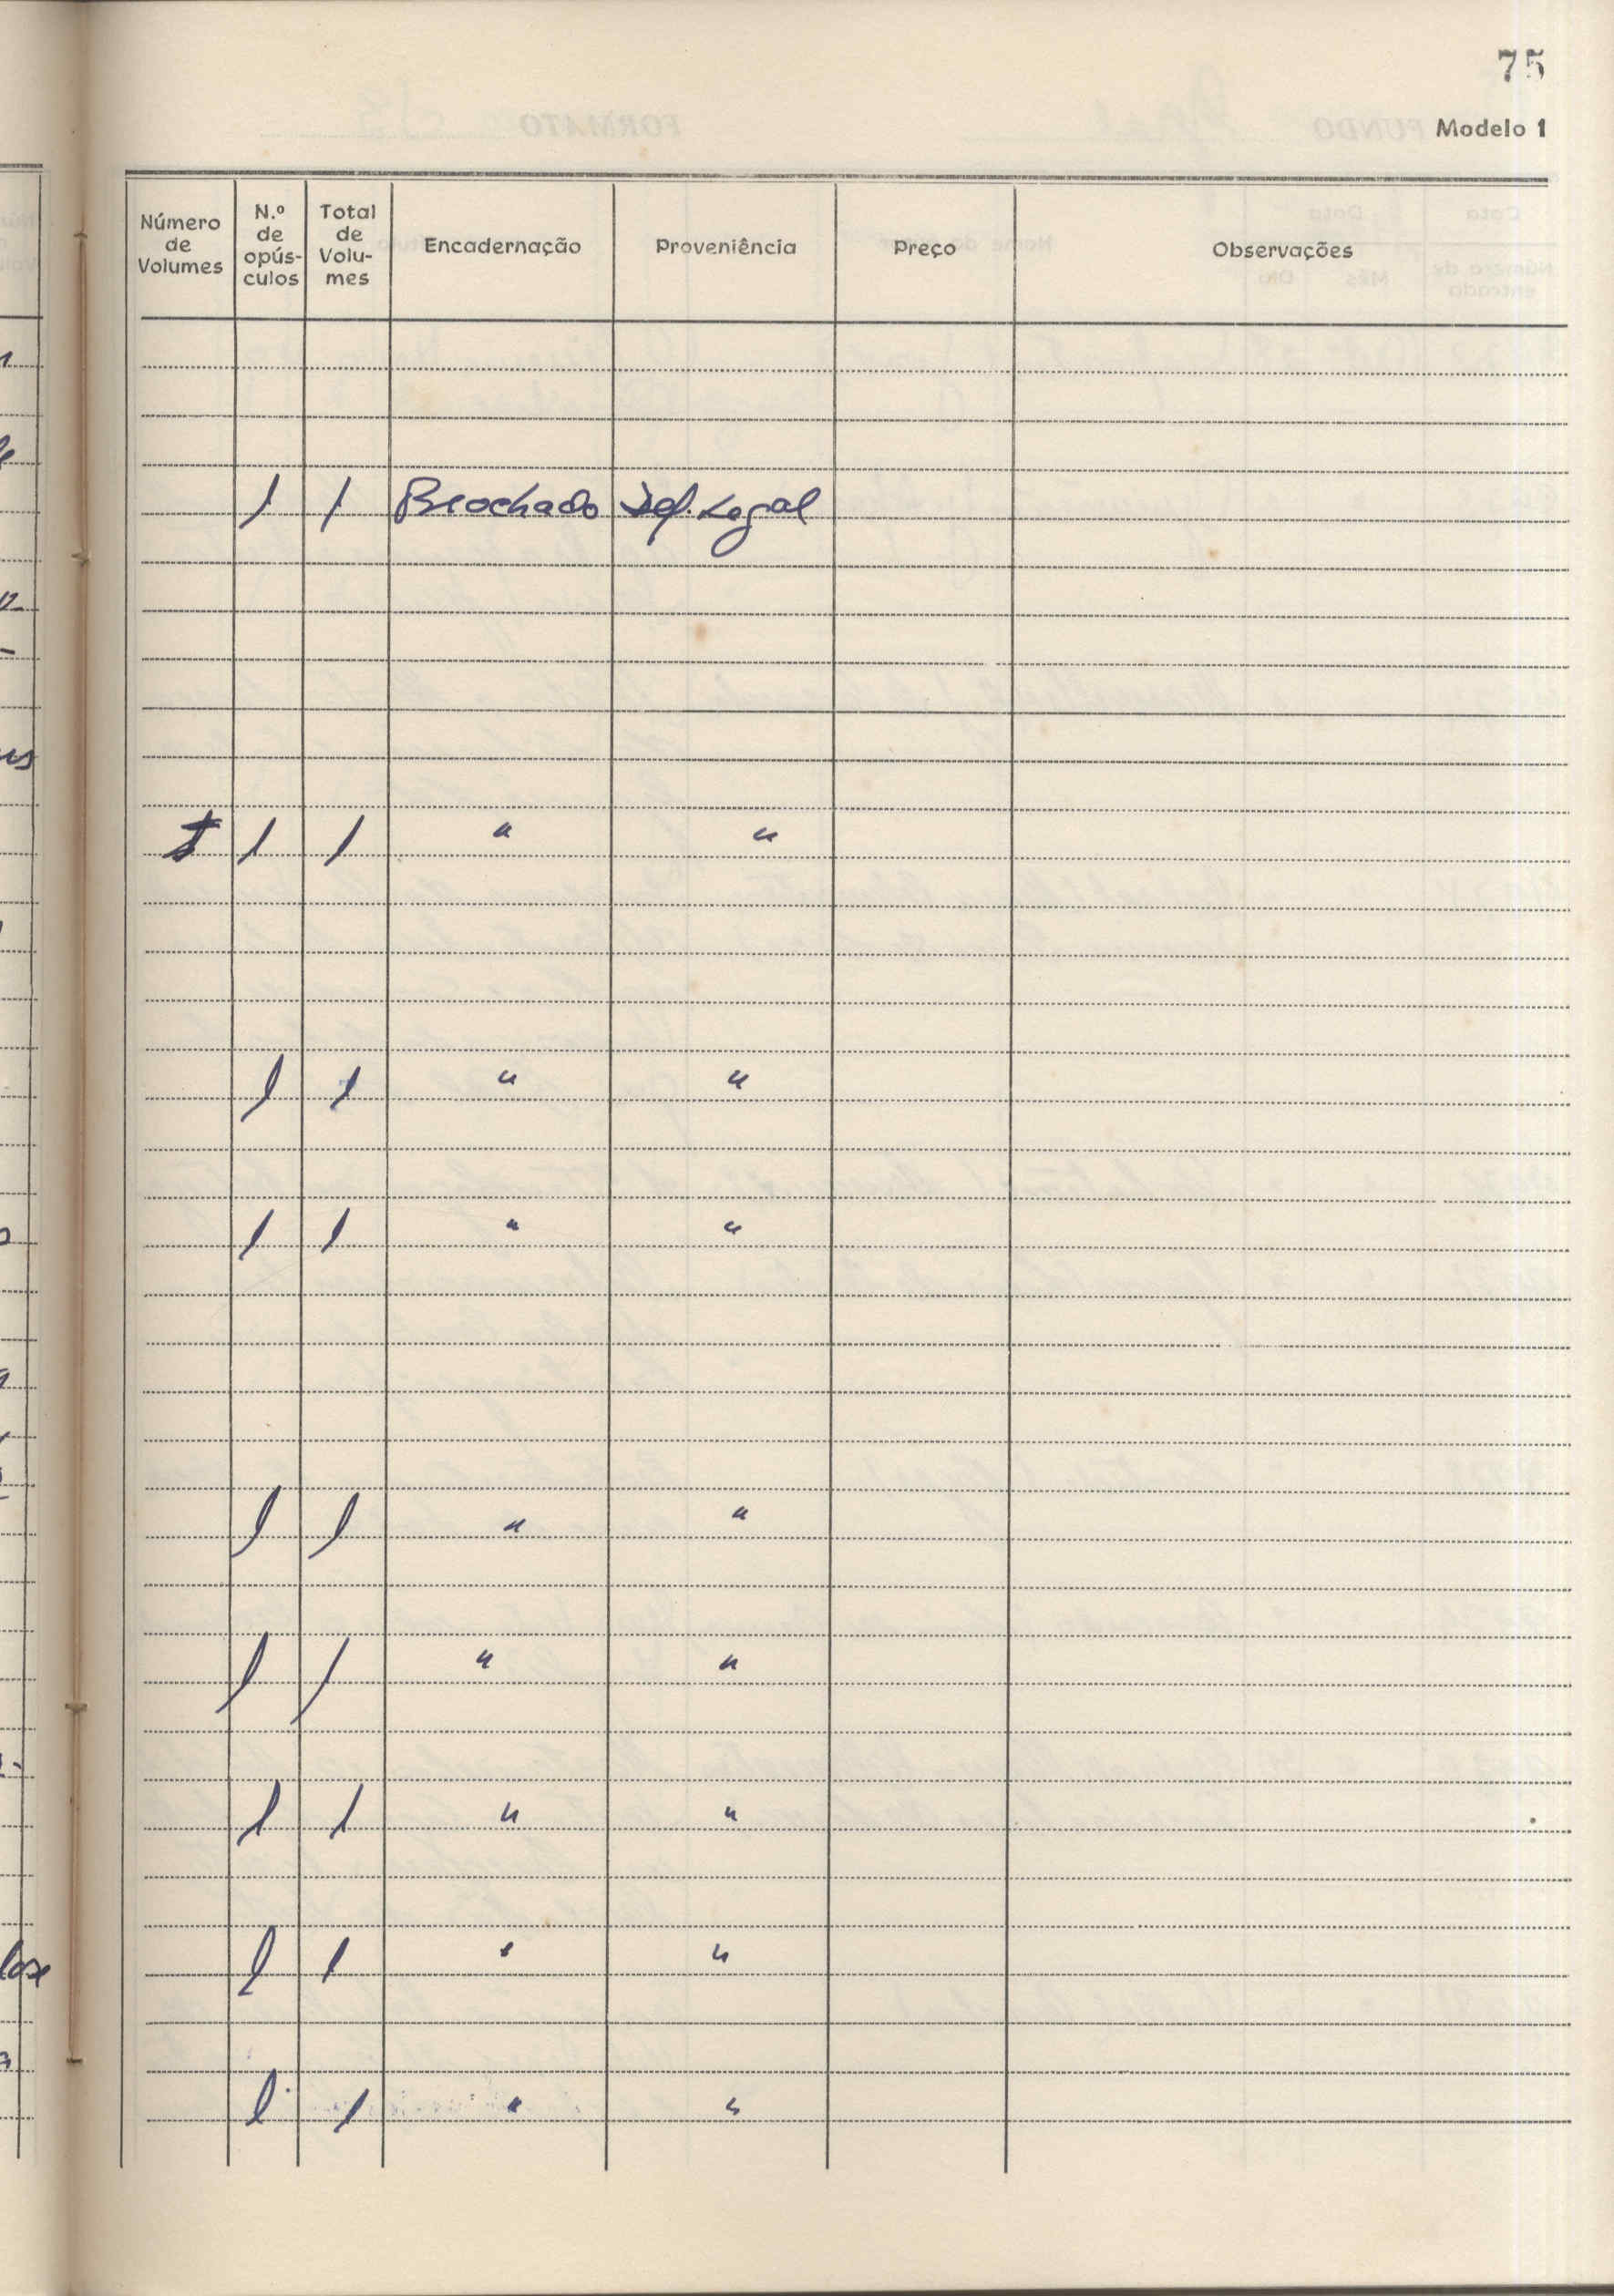 75
Modelo 1
Número de Volumes | N.º de opús-culos | Total de Volu-mes | Encadernação | Proveniência | Preço | Observações
1 | 1 | Brochado | Dep. Legal
1 | 1 | " | "
1 | 1 | " | "
1 | 1 | " | "
1 | 1 | " | "
1 | 1 | " | "
1 | 1 | " | "
1 | 1 | " | "
1 | 1 | " | "